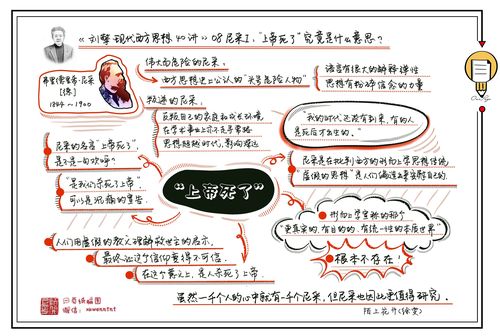 《刘擎·现代西方思想40讲》08尼采I:"上帝死了"究竟是什么意思？
弗里德里希·尼采
【德】
1844~1900
伟大而危险的尼采：
西方思想史上公认的"头号危险人物"
语言有很大的解释弹性
思想有粉碎信念的力量
叛逆的尼采：
反叛自己的家庭和成长环境
在学术事业上亦不走寻常路
思想超越时代，影响深远
"我的时代还没有到来，有的人
是死后才出生的。"
尼采的名言"上帝死了"，
是不是一句欢呼？
"是我们杀死了上帝"，
可以是沉痛的警告
"上帝死了"
尼采是在批判西方的形而上学思想传统
"虚假的思想"是人们编造出来安慰自己的
形而上学宣称的那个
"更真实的、有目的的、有统一性的本质世界"
根本不存在！
人们用虚假的教义理解救世主的启示，
最终让这个信仰变得不可信，
在这个意义上，是人杀死了上帝。
虽然一千个人的心中就有一千个尼采，但尼采也因此更值得研究。
一页纸绘图
微信：
陌上花开(徐雯)